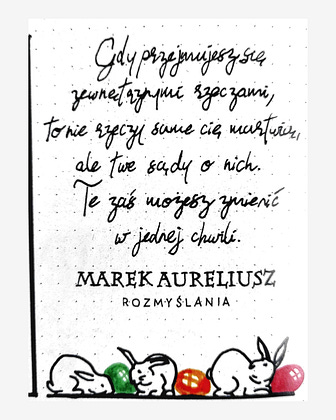 Gdy przejmujesz się
zewnętrznymi rzeczami,
to nie rzeczy same cię martwią,
ale twe sądy o nich.
Te zaś możesz zmienić
w jednej chwili.
MAREK AURELIUSZ
ROZMYŚLANIA